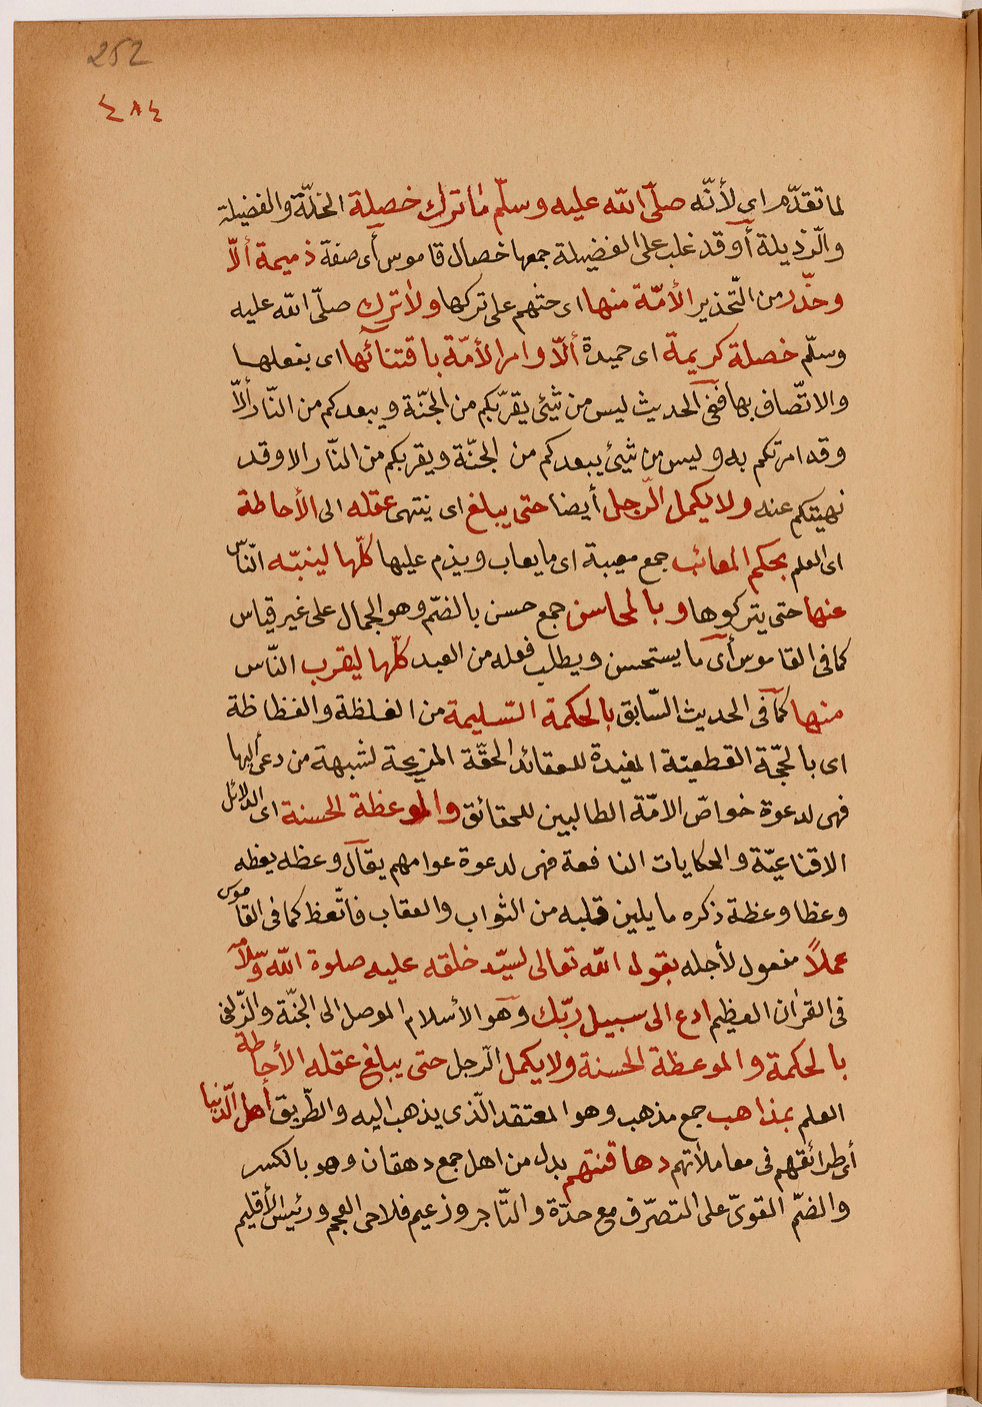 252
٤٨٤
لما تقدّم اى لأنّه صلّى الله عليه وسلّم ما ترك خصيلة الخلّة والفضيلة
والرّذيلة أو قد غلب على الفضيلة جمعها خصال قاموس أى صفة ذميمة ألاّ
وحذّر من التّحذير الأمّة منها اى حثهم على تركها ولا ترك صلّى الله عليه
وسلّم خصلة كريمة اى حميدة ألاّ وامر الأمّة باقتنائها اى بفعلها
والاتّصاف بها ففى الحديث ليس من شئ يقرّبكم من الجنّة ويبعدكم من النّار ألاّ
وقد امرتكم به وليس من شئ يبعدكم من الجنّة ويقربكم من النّار الا وقد
نهيتكم عنه ولا يكمل الرّجل أيضا حتى يبلغ اى ينتهى عقله الى الأحاطة
اى العلم بحكم المعائب جمع معيبة اى ما يعاب ويذم عليها كلّها لينبّه النّاس
عنها حتى يتركوها وبالمحاسن جمع حسن بالضمّ وهو الجمال على غير قياس
كما فى القاموس أى ما يستحسن ويطلب فعله من العبد كلّها ليقرب النّاس
منها كما فى الحديث السّابق بالحكمة السّليمة من الغلظة والفظاظة
اى بالحجّة القطعيّة المفيدة للعقائد الحقّة المزيحة لشبهة من دعى اليها
فهى لدعوة خواصّ الامّة الطالبين للحقائق والموعظة الحسنة اى الدلائل
الاقناعيّة والحكايات النافعة فهى لدعوة عوامهم يقال وعظه يعظه
وعظا وعظة ذكره ما يلين قلبه من الثواب والعقاب فاتّعظ كما فى القاموس
عملاً مفعول لأجله بقول الله تعالى لسيّد خلقه عليه صلوة الله وسلامه
فى القرأن العظيم ادع الى سبيل ربّك وهو الأسلام الموصل الى الجنّة والزّلفى
بالحكمة والموعظة الحسنة ولا يكمل الرّجل حتى يبلغ عقله الأحاطة
العلم بمذاهب جمع مذهب وهو المعتقد الّذى يذهب اليه والطّريق أهل الّدنيا
أى طرائقهم فى معاملاتهم دهاقنتهم بدل من اهل جمع دهقان وهو بالكسر
والضمّ القوىّ على التصرّف مع حدّة والتّاجر وزعيم فلاحى العجم ورئيس الأقليم